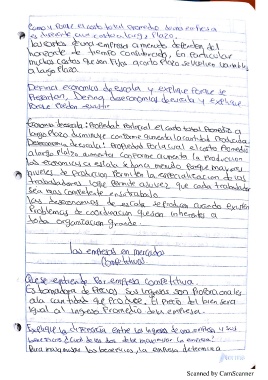 Como y Porque el costo total promedio de una empresa
es diferente que costo a largo Plazo.
Los costos de una empresa a menudo dependen del
horizonte de tiempo considerado, En particular
muchos costos que son fijos a corto Plazo se vuelven variables
a largo Plazo.
Defina economias de escala y explique Porque se
Presentan, Defina deseconomias de escala y Explique
Porque Pueden existir
Economia de escala: Propiedad Por la cual el costo total Promedio a
largo Plazo disminuye conforme aumenta la cantidad Producida
Deseconomia de escala: Propiedad Por la cual el costo Promedio
a largo Plazo aumenta conforme aumenta la Producción
las economias de escala a menudo Porque mayores
niveles de Producción Permiten la especialización de los
trabajadores lo que Permite a su vez que cada trabajador
sea mas competente en su trabajo
las deseconomias de escala se producen cuando existen
Problemas de coordinación que son inherentes a
toda organización grande.
Las empresas en mercados
Competitivos
Que se entiende Por empresa competitiva
Es tomadora de Precios. Sus ingresos son Proporcionales
a la cantidad que Produce. El Precio del bien sera
igual al ingreso Promedio de la empresa.
Explique la diferencia entre los ingresos de una empresa y sus
beneficios ¿Cual de los dos debe maximizar la empresa?
Para maximizar los beneficios, la empresa determina
Norma
Scanned by CamScanner